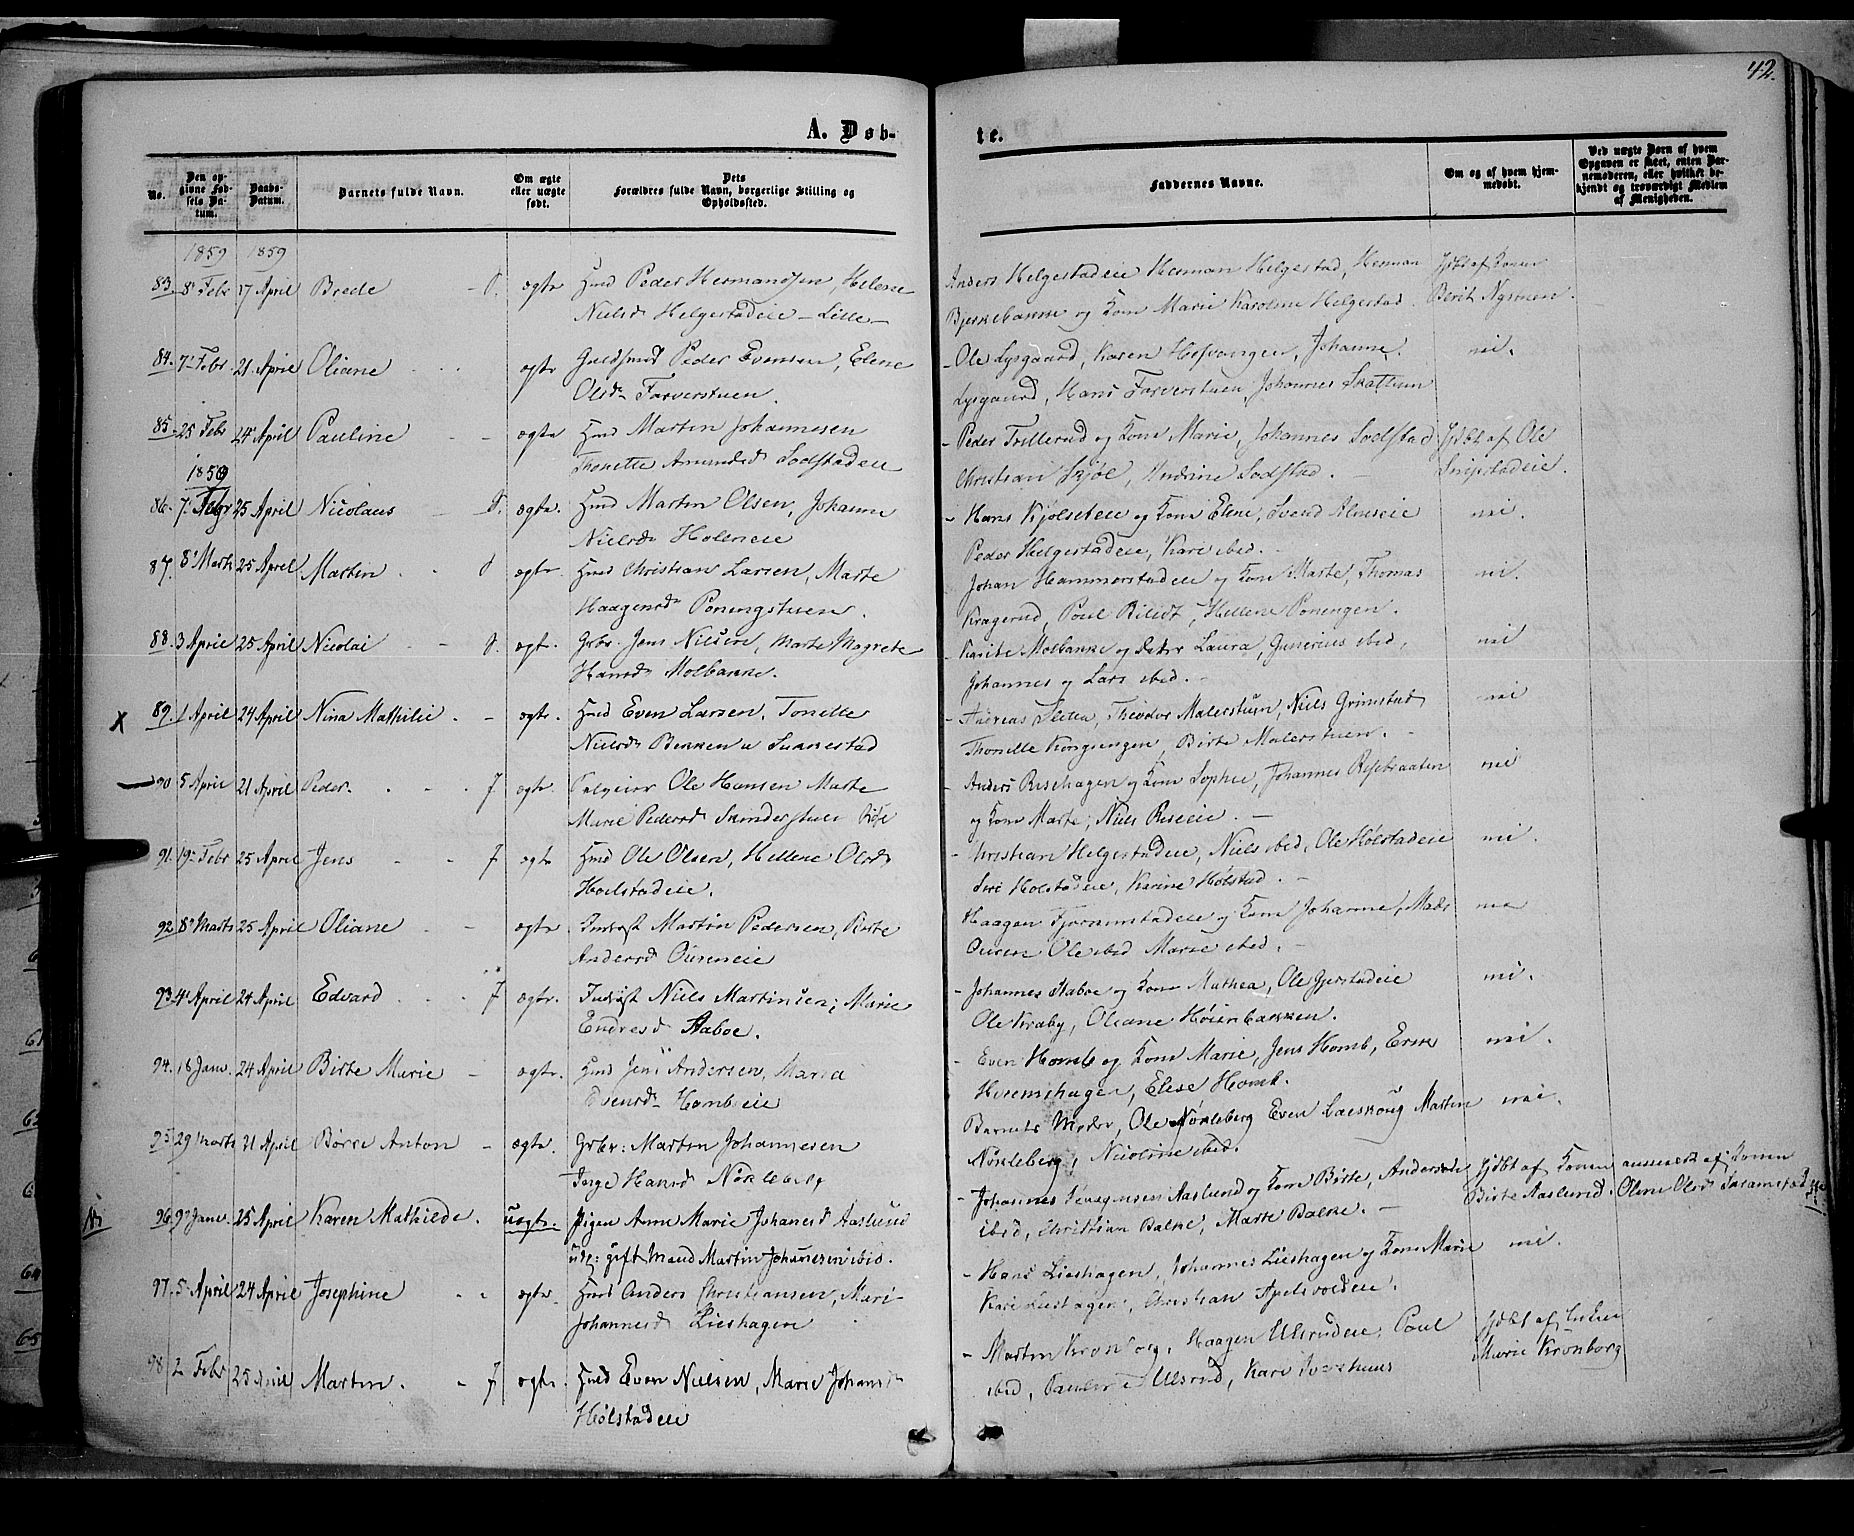 42.
A. Døb-
te.
No.
Den op-
givne Fød-
sels Da-
tum.
Daabs-
Datum.
Barnets fulde Navn.
Om ægte
eller uægte
født.
Dets
Forældres fulde Navn, borgerlige Stilling og
Opholdssted.
Faddernes Navne.
Om og af hvem hjem-
medøbt.
Ved uægte Børn af hvem
Opgaven er skeet, enten Bar-
nemoderen, eller hvilket be-
kjendt og troværdigt Medlem
af Menigheden.
1859 1859
83. 8 Febr 17 April Brede ægte Hmd Peder Hermandsen, Helene
Nielsd Helgestadeie - Lille -
Anders Helgestadeie Herman Helgestad, Herman
Bjerkebakke og Kone Marie Karoline Helgestad
Hjdbt af Konen
Berit Nysmoen.
84. 7 Febr 21 April Oliane ægte Guldsmed Peder Evensen, Elene
Olsd Farverstuen.
Ole Lysgaard, Karen Hofvangen, Johanne
Lysgaard, Hans Farverstuen, Johannes Skattum
nei.
85. 25 Febr 24 April Pauline ægte Hmd Martin Johannesen
Thonette Amundsd Sodstadeie
Peder Trillerud og Kone Marie, Johannes Sodstad
Christian Skjøl, Andrine Sodstad.
Hjdbt af Ole
Snipstadeie.
1859
86. 7 Febr 25 April Nicolaus ægte. Hmd Martin Olsen, Johanne
Nielsd Holmeie
Hans Kjølseteie og Kone Elene, Svend Almseie
Peder Helgestadeie, Kari ibid.
nei.
87. 8 Marts 25 April Martin ægte. Hmd Christian Larsen, Marte
Haagensd Poningstuen.
Johan Hammerstadeie og Kone Marte, Thomas
Kragerud, Poul Bilidt, Hellene Poningen.
nei.
88. 3 April 25 April Nicolai ægte. Grbr. Jens Nilsen, Marte Magrete
Hansd Molbakke.
Molbakke og Datter Laura, Gunerius ibid,
Johannes og Lars ibid.
nei
X 89. 1 April 24 April Nina Mathilie ægte. Hmd Even Larsen, Tonelle
Nielsd Bakken u Sukkestad
Andreas Sletten, Theodor Malerstuen, Niels Grimstad
Thonille Kongsengen, Birte Malerstuen.
nei
90 5 April 21 April Peder. ægte. Ole Hansen Marte
Marie Pedersd
Anders Risehagen og Kone Sophie, Johannes Risebraaten
og Kone Marte, Niels Riseeie.
nei
91. 19 Febr 25 April Jens ægte Hmd Ole Olsen, Hellene Olsd
Hoelstadeie.
Christian Helgestadeie, Niels ibid, Ole Hølstadeie
Siri Holstadeie, Karine Hølstad.
nei.
92. 8 Marts 25 April Oliane ægte Indrgst Martin Pedersen, Birte
Andersd Oureneie
Haagen Fjorumstadeie og Kone Johanne, Mads
Ouren Ole ibid Marie ibid.
nei
93. 4 April 24 April Edvard ægte. Indrgst Niels Martinsen, Marie
Endresd Aaboe.
Johannes Aaboe og Kone Mathea, Ole Gjerstadeie
Ole Kraby, Oliane Høienbakken.
nei.
94. 16 Janv. 24 April Birte Marie ægte. Hmd Jens Andersen, Maria
Evensd Hombeie
Even Homb og Kone Marie, Jens Homb, Erik
Hveemshagen, Elise Homb.
nei.
95 29 Marts 21 April Børre Anton ægte. Grbr: Martin Johannesen
Inge Hansd Nøkleberg
Barnets Moder, Ole Nøkleberg Even Laeskoug Martin
Nøkleberg, Nicoline ibid.
nei.
96. 9 Janv. 25 April Karen Mathilde. uægte. Pigen Anne Marie Johanesd Aaslund
udl: gift Mand Martin Johannesen ibid.
Johannes Aaslund og Kone Birte, Anders
ibid, Christian Balke, Marte Balke.
Hjdbt af Konen
Birte Aaslund.
af Konen
Oline Olsd
97. 5 April 24 April Josephine ægte. Hmd Anders Christiansen, Mari
Johannesd Lieshagen
Hans Lieshagen, Johannes Lieshagen og Kone Marie
Kari Lieshagen, Christian Apelsvoldeie.
nei.
98 2 Febr 25 April Martin. ægte. Hmd Even Nielsen, Marie Johansd
Hølstadeie
Martin Kronborg, Haagen Ulsrudeie, Poul
ibid, Pauline Ulsrud, Kari
Hjdbt af Enken
Marie Kronborg